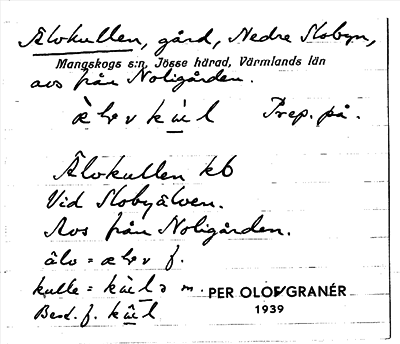 Älvkullen, gård, Nedre Slobyn,
Mangskogs s:n, Jösse härad, Värmlands län
avs från Noligården.
Prep. på.
Älvkullen kb
Vid Slobyälven.
Avs från Noligården.
älv = f.
kulle = m.
PER OLOF GRANÉR
Best. f.
1939